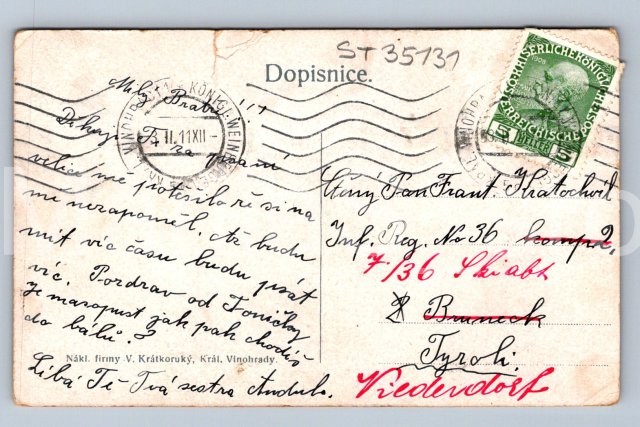 ST 35131
Dopisnice.
Milý Bratř
Děkuji Ti za psaní
velice mé potěšilo že si na
me nezapoměl. Až budu
mít víc času budu psát
víc. Pozdrav od Toničky
Je marapust jak pak chodíš
do bálů?
Nákl. firmy V. Krátkoruký, Král. Vinohrady.
Líbá Tě Tvá sestra Andula.
Ctěný Pan Frant. Kratochvil
Inf. Reg. No 36 komp. 2,
7/36 Skiabt
Bruneck
Tyroli.
Niederdorf
KAISERLICHE KÖNIGLICHE
ÖSTERREICHISCHE POST
1908
5 HELLER 5
II.11XII